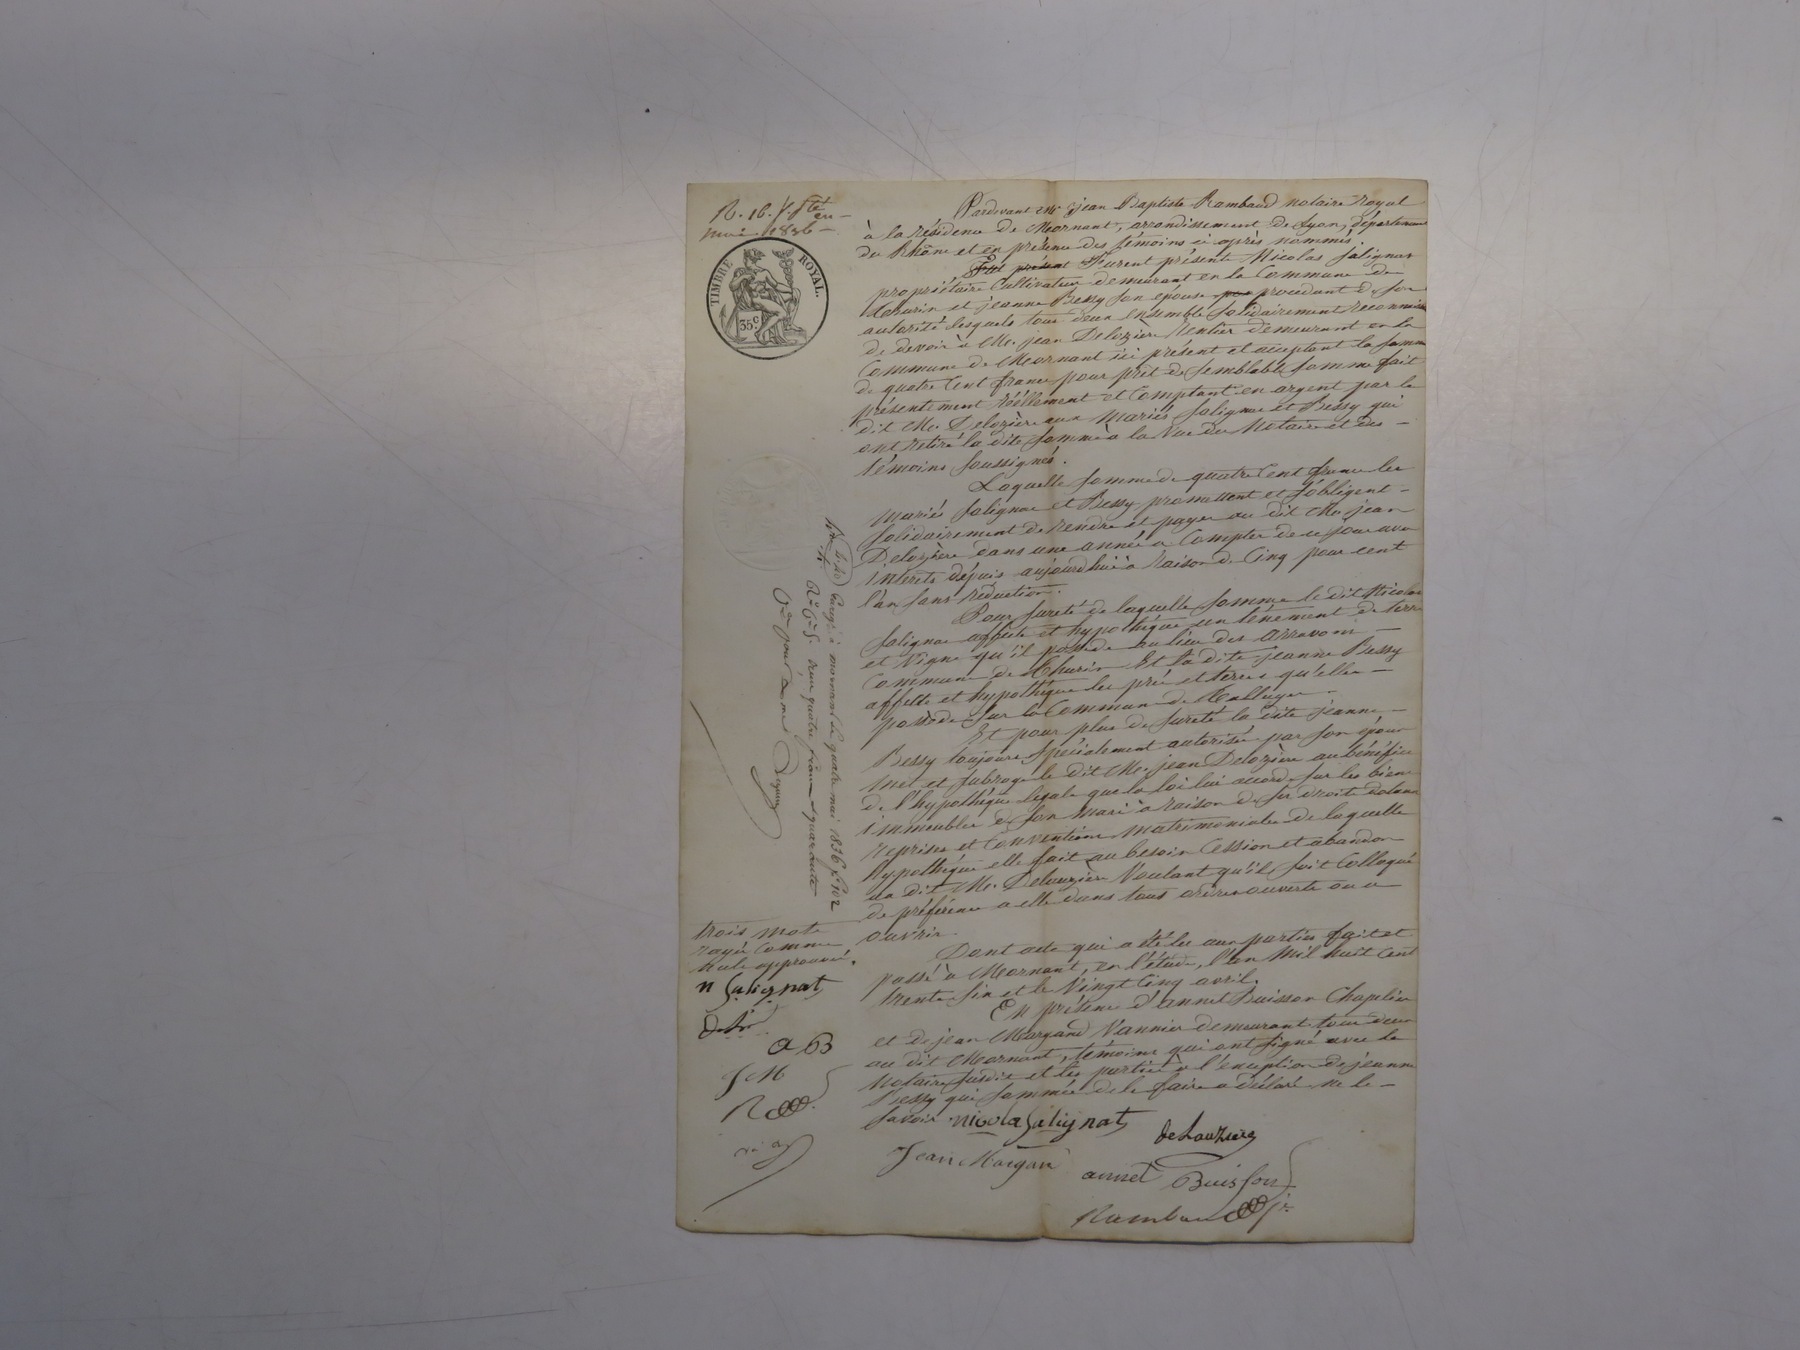 mai 1836
TIMBRE ROYAL.
35 c
Pardevant Me Jean Baptiste Rambaud notaire royal
à la résidence de Mornant, arrondissement de Lyon, département
du Rhône et en présence des témoins ci après nommés.
Fut présent Furent présents Nicolas Salignat
propriétaire Cultivateur demeurant en la Commune de
Thurin et jeanne Bessy son épouse procédant de son
autorité lesquels tous deux ensemble Solidairement reconnaissent
de devoir à Mr. jean Delozière Rentier demeurant en la
Commune de Mornant ici présent et acceptant la somme
de quatre Cent francs pour prêt de semblable somme fait
présentement réellement et Comptant en argent par le
dit Mr. Delozière aux Mariés Salignat et Bessy qui
ont retiré la dite somme à la Vue du Notaire et des
témoins soussignés.
Laquelle somme de quatre Cent francs les
Mariés Salignat et Bessy promettent et s'obligent
solidairement de rendre et payer au dit Mr jean
Delozière dans une année a Compter de ce jour avec
intérêts depuis aujourd'hui à raison de Cinq pour cent
l'an sans réduction.
Pour sureté de laquelle somme le dit Nicolas
Salignat affecte et hypothèque un tènement de terre
et Vigne qu'il possède au lieu des
Commune de Thurin Et la dite jeanne Bessy
affecte et hypothèque les prés et terres qu'elle
possède sur la Commune de
Et pour plus de sureté la dite jeanne
Bessy toujours spécialement autorisée par son époux
met et subroge le dit Mr. jean Delozière au bénéfice
de l'hypothèque légale que la loi lui accorde sur les biens
immeubles de son mari à raison de ses droits dotaux
reprises et Conventions matrimoniales de laquelle
hypothèque elle fait au besoin Cession et abandon
au dit Mr. Delauzière Voulant qu'il soit Colloqué
de préférence a elle dans tous ordres ouverts ou a
ouvrir.
Dont acte qui a été lu aux parties fait et
passé à Mornant, en l'étude, l'an Mil huit Cent
trente six et le Vingt Cinq avril.
En présence d'annet Buisson Chapelier
et de jean Margand Vannier demeurant tous deux
au dit Mornant, témoins qui ont signé avec le
Notaire susdit et les parties à l'exception de jeanne
Bessy qui sommée de le faire a déclaré ne le
savoir
nicola Salignat
deLauziere
Jean Margan
annet Buisson
Rambaud
Enregé à mornant le quatre mai 1836 fo 102
Reçu quatre francs quarante
trois mots
rayés Comme
nuls approuvés.
n Salignat
a B
J M
R